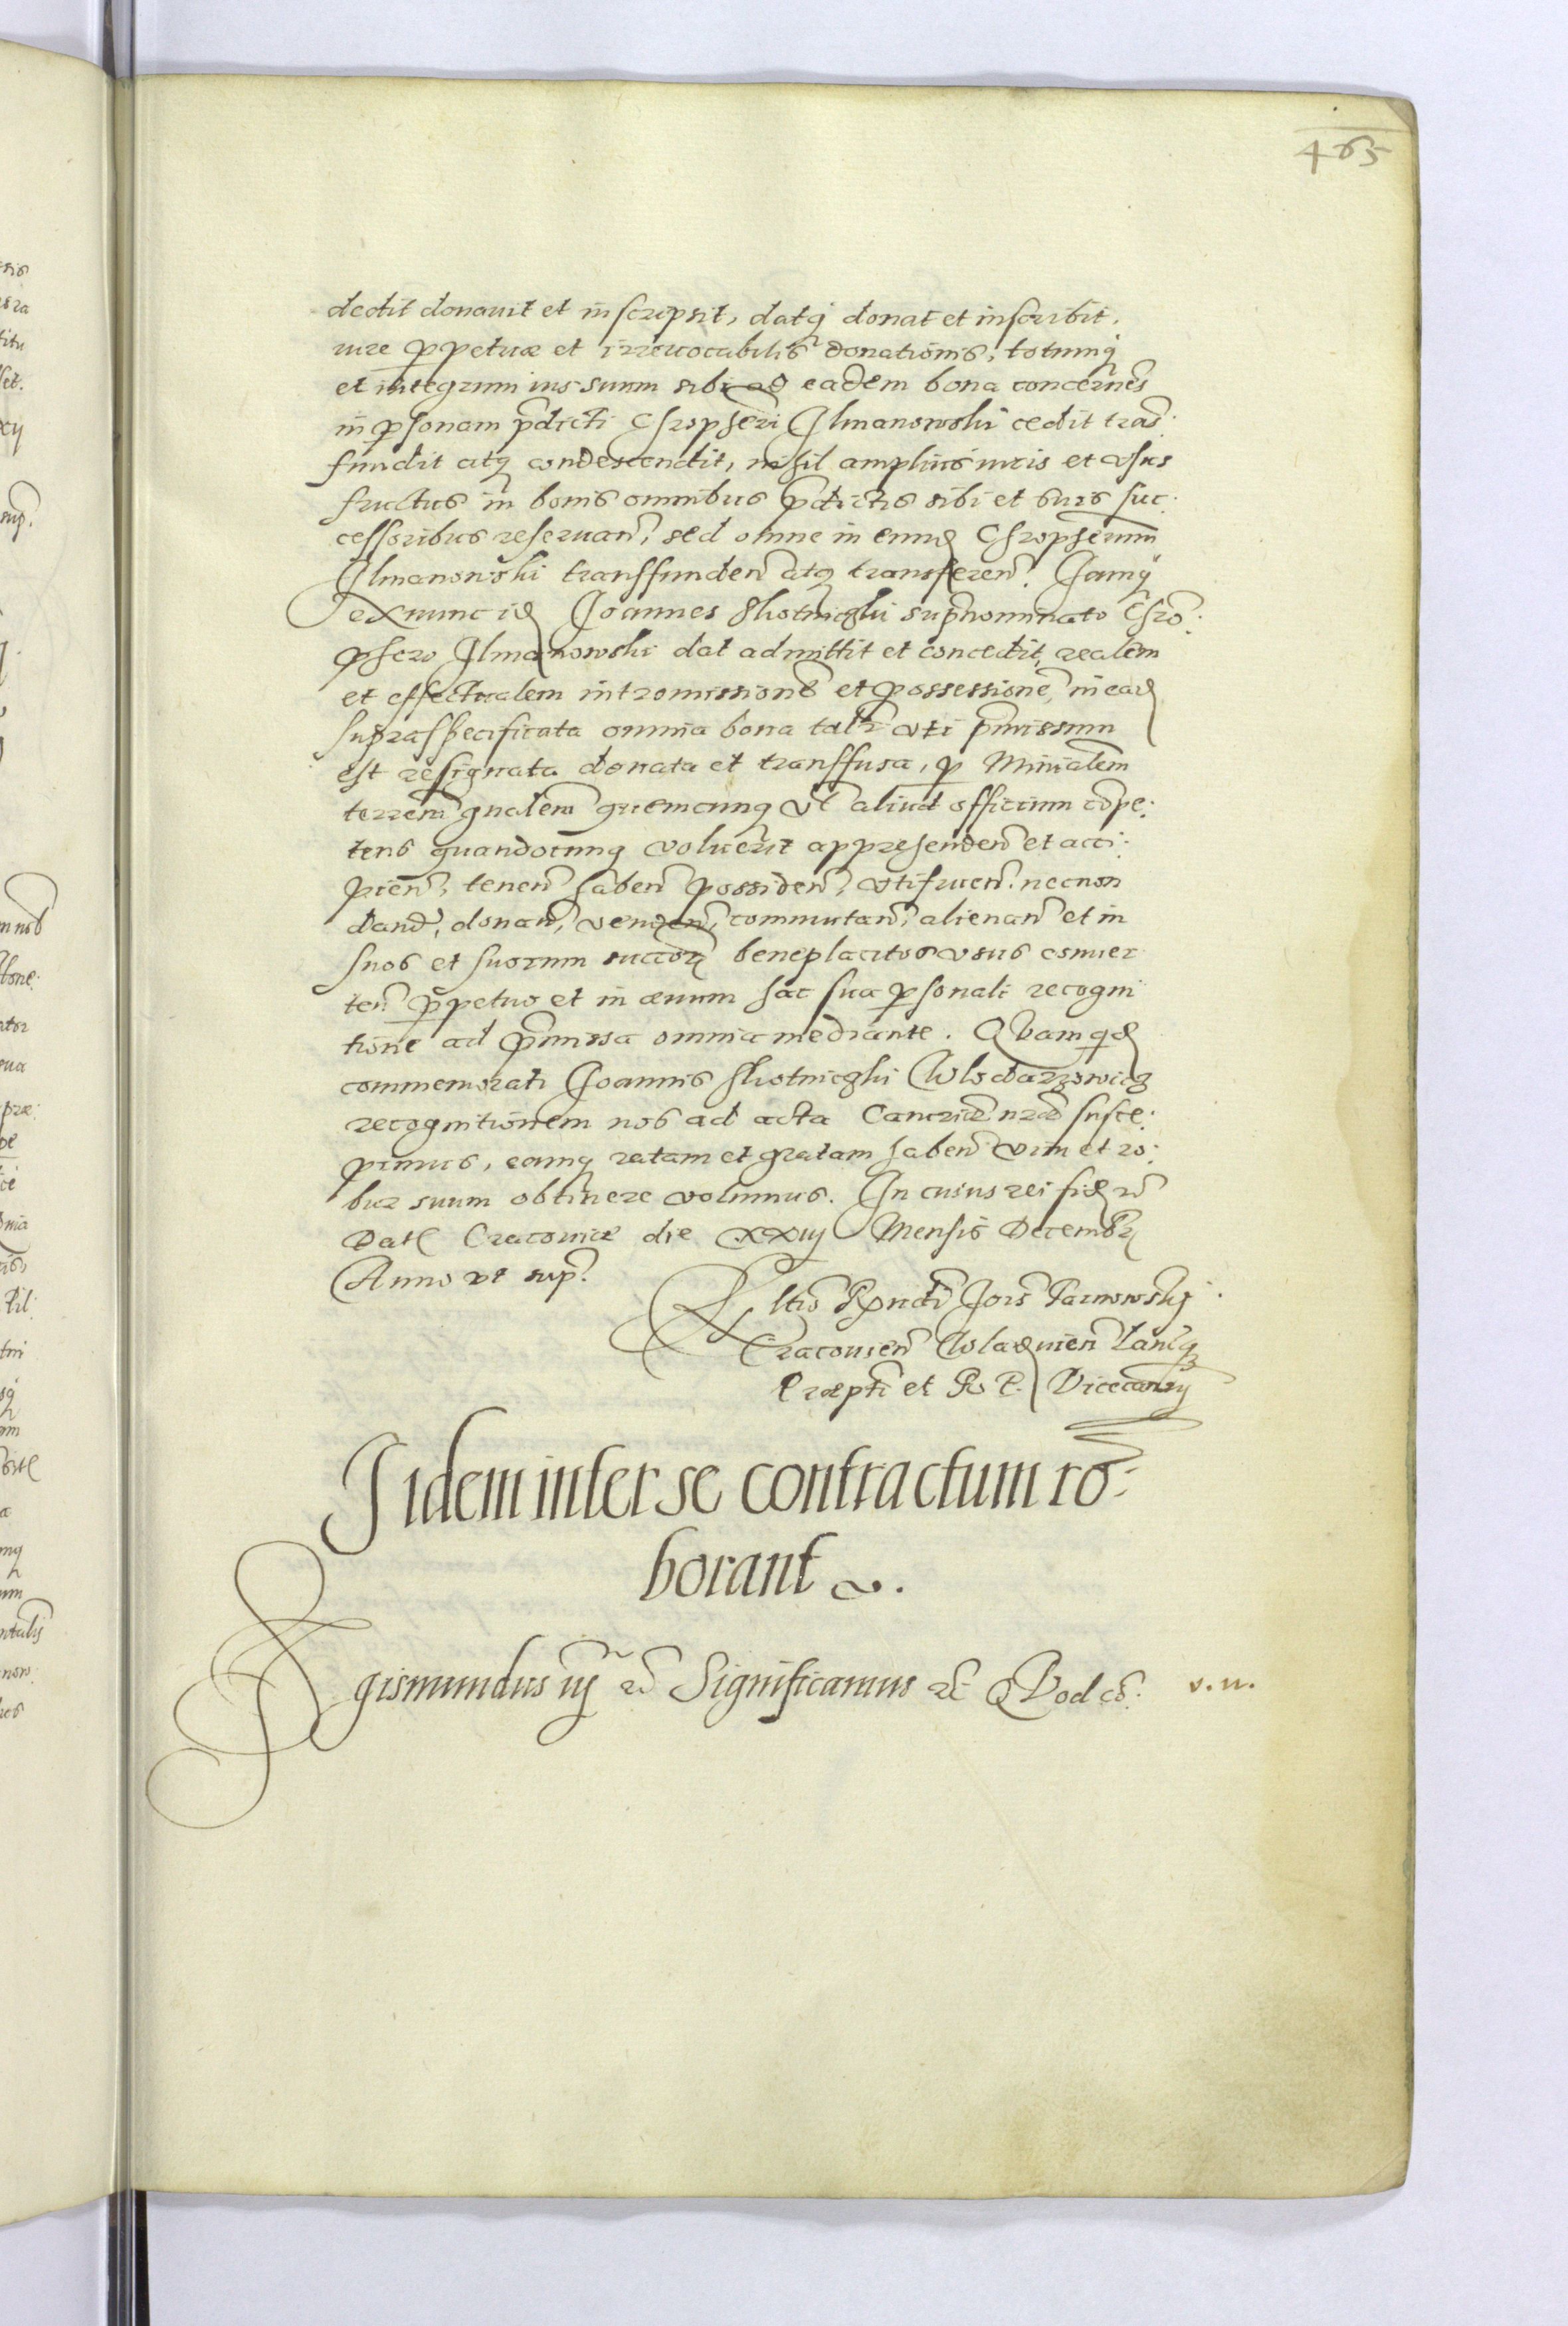 465
dedit donauit et inscripsit, datq donat et inscribit,
iure ppetuæ et irreuocabilis donationis, totumq
et integrum ius suum sibi ad eadem bona concernēs
in psonam pdicti Chropheri Ilmanowski cedit trās
fundit atq condescendit, nihil amplius iuris et vsus
fructus in bonis omnibus pdictis sibi et suis suc:
cessoribus reseruan, sed omne in eund Chropherum
Ilmanowski transfunden atq transferen. Iamq
ex nunc id Joannes Skotniczki supnominato Chro:
phero Ilmanowski dat admittit et concedit, realem
et effectualem intromissionē et possessionē, in ead
supraspecificata omnia bona talr vti pmissum
est resignata donata et transfusa, p Minialem
terrem gnalem quemcunq vl aliud officium cōpe:
tens quandocunq voluerit apprehenden et acci:
pien, tenen haben possiden, vtifruen. necnon
dand, donan, venden, commutan, alienan et in
suos et suorum succor beneplacitos vsus conuer
ten ppetuo et in æuum hac sua psonali recogni
tione ad pmissa omnia mediante. QVamqd
commemorati Joannis Skotniczki Wlodarzowicz
recognitionem nos ad acta Cancriæ nræ susce:
pimus, eamq ratam et gratam haben vim et ro:
bur suum obtinere volumus. In cuius rei fid rc
Dat Cracouiæ die xxiij Mensis Decembr
Anno vt sup.
Rltio Rpndi Jois Tarnowskj
Cracouien Wladmien Lanicq
Præpti et R. P. Vicecanrij
Iidem inter se contractum ro:
borant
Sigismundus iij rc Significamus rc QVod cō: v. n.